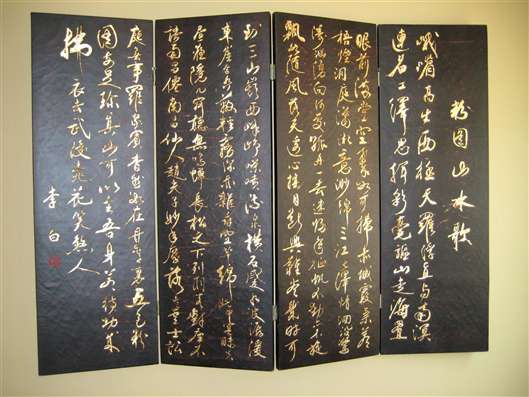 粉圖山水歌
峨嵋高出西極天羅浮直與南溟
連名工繹思揮彩毫驅山走海置
眼前滿堂空翠如可掃赤城霞氣蒼
梧煙洞庭瀟湘意渺綿三江七澤情洄沿驚
濤洶湧向何處孤舟一去迷歸年征帆不動亦不旋
飄如隨風落天邊心搖目斷興難盡幾時可
到三山巔西峰崢嶸噴流泉橫石蹙水波潺湲
東崖合沓蔽輕霧深林雜樹空芊綿此中冥昧失
晝夜隱几寂聽無鳴蟬長松之下列羽客對坐不
語南昌仙南昌仙人趙夫子妙年歷落青雲士訟
庭無事羅眾賓杳然如在丹青裏五色粉
圖安足珍真山可以全吾身若待功成
拂衣去武陵桃花笑殺人
李白